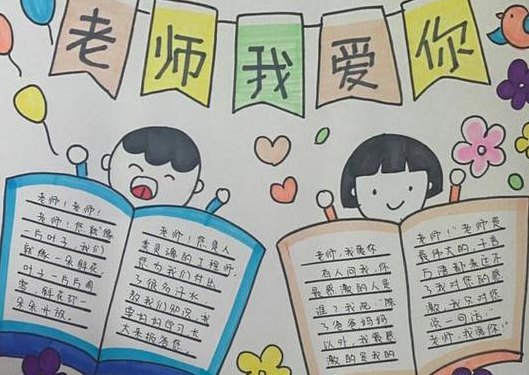 老师我爱你
老师！老师！
老师！您就像
一片叶子，我们
就像一朵鲜花
叶子一片片凋
零，鲜花却一
朵朵开放。
老师！您是人
类灵魂的工程师
您为我们付出
了很多汗水
教我们知识，盼
大来报答您。
老师，我爱你
有人问我，你
最感激的人是
谁？我总：“除
了爸爸妈妈
以外，我最感
激的是我的
老师！”老师是
最伟大的，千言
万语都表达不
了我对您的感
激，我只对您
说一句话：
老师，我爱你！”